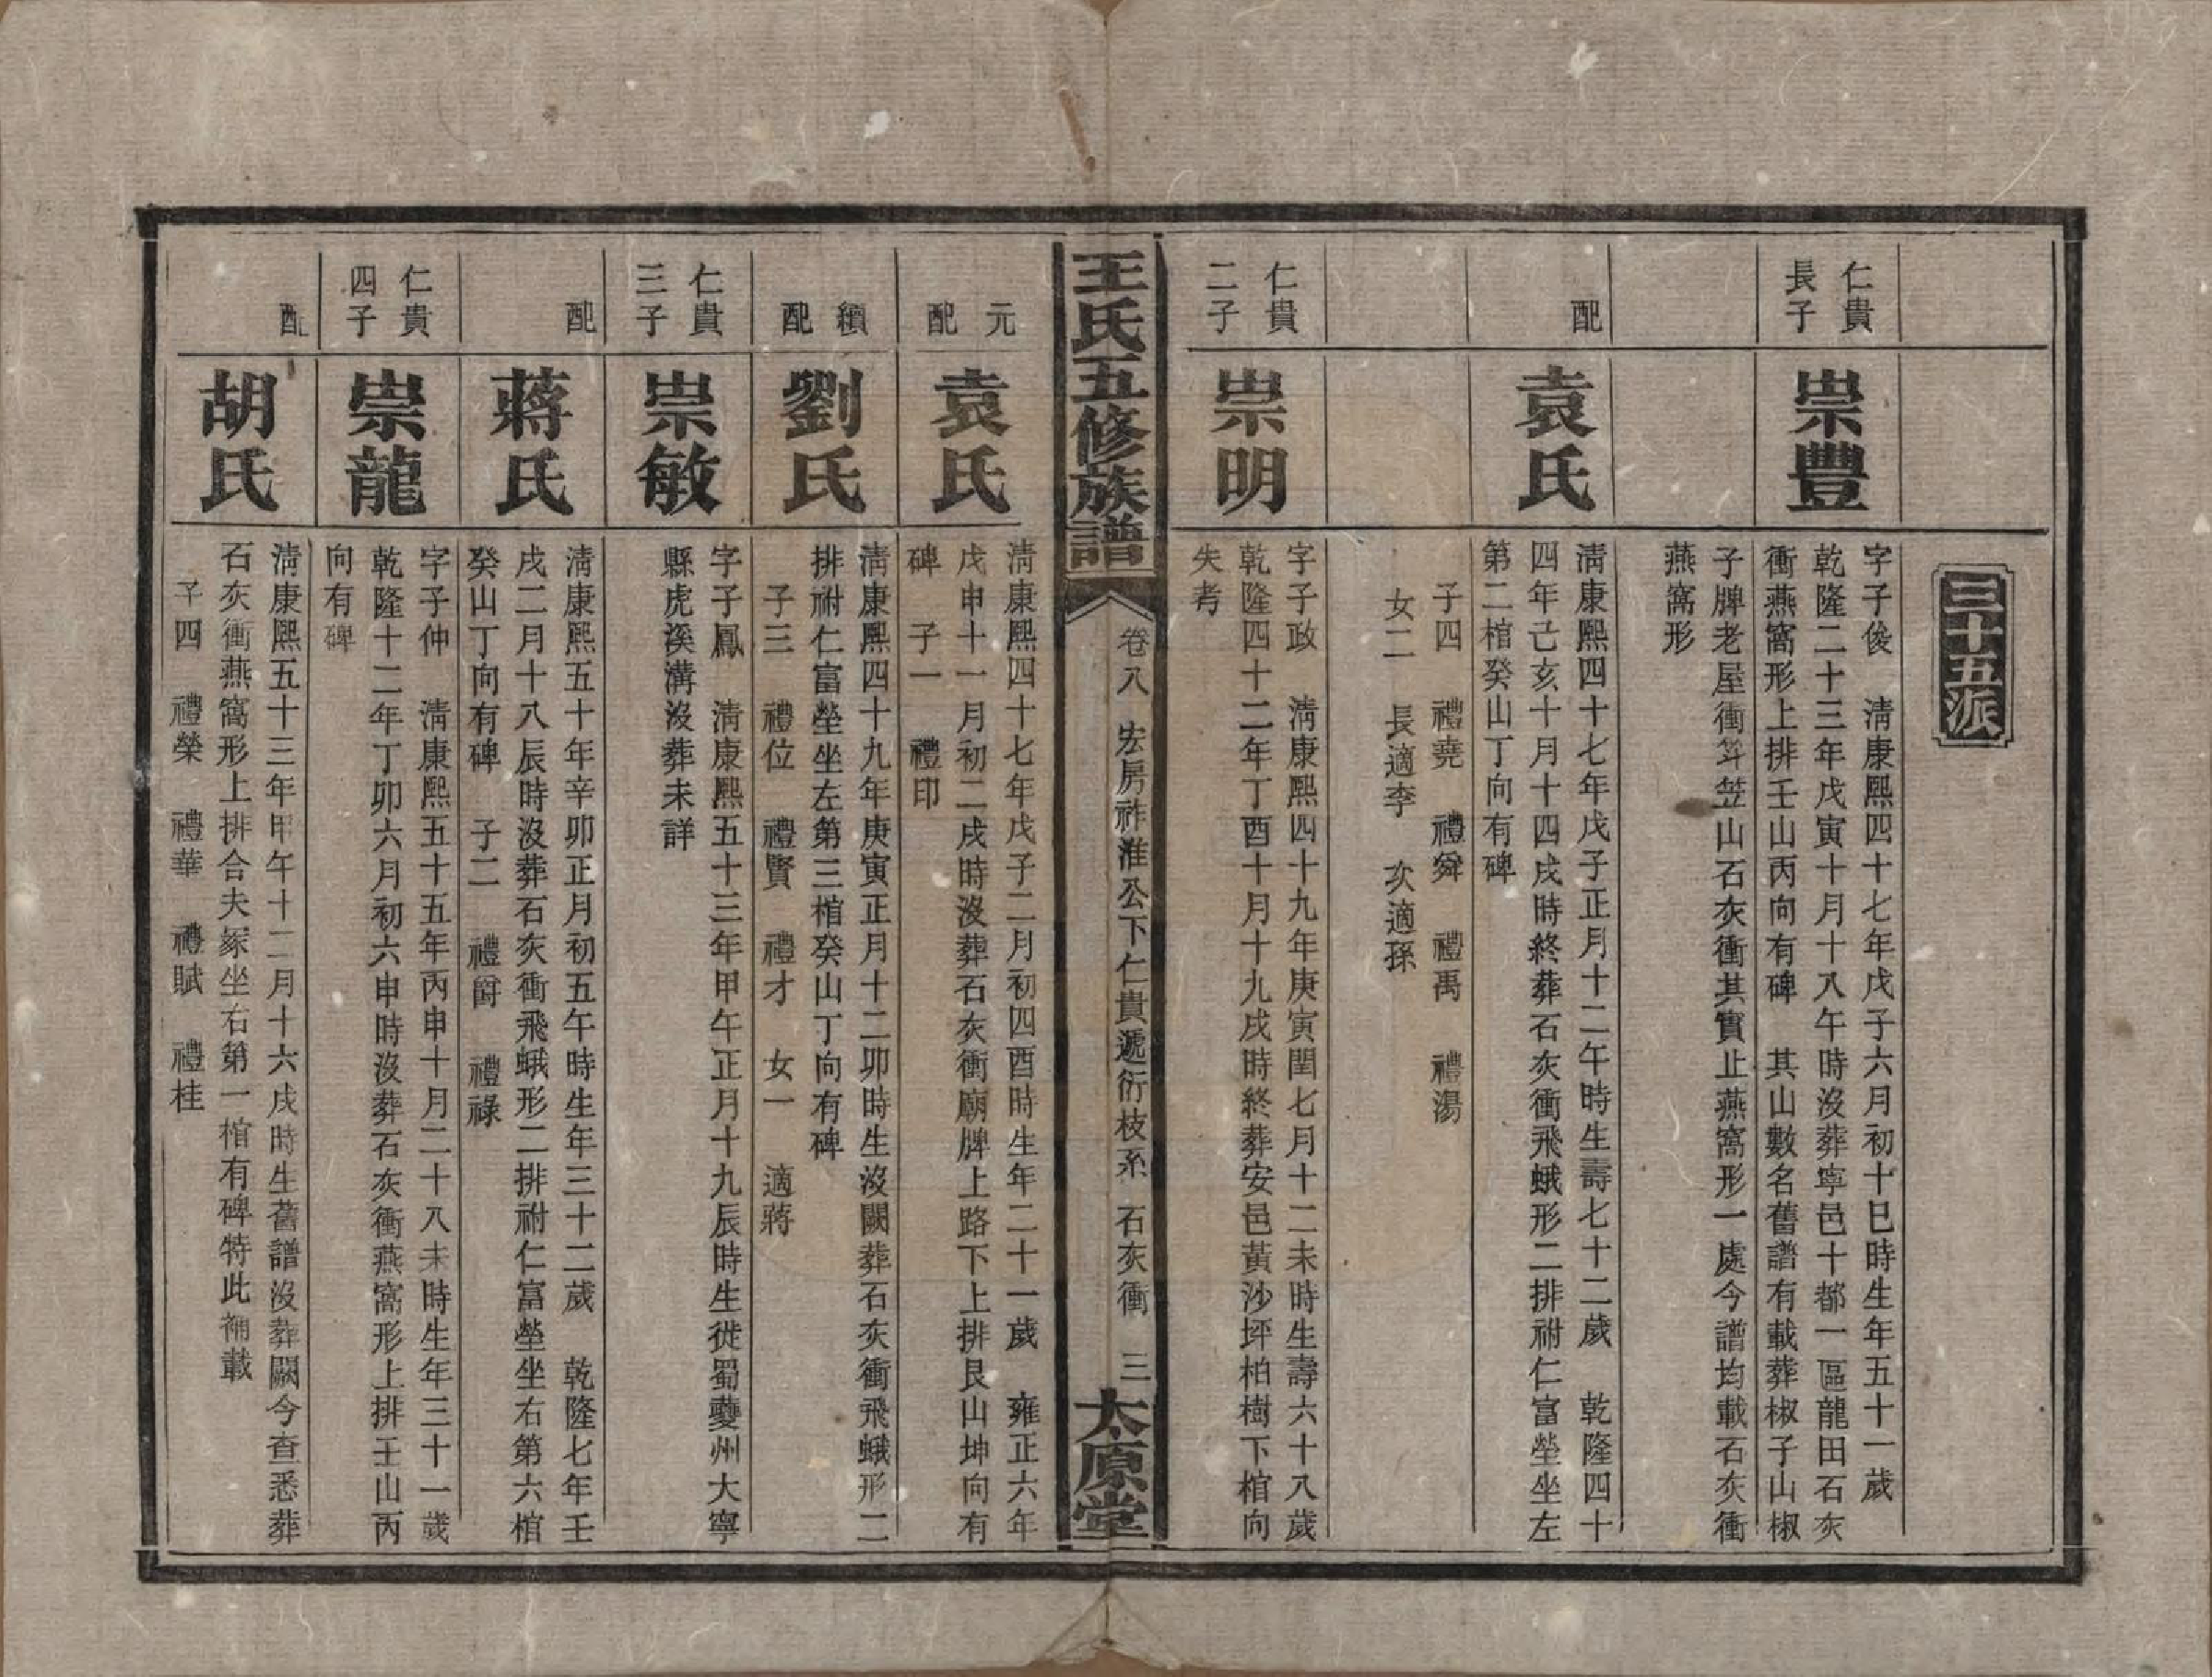 三十五派
仁貴
長子
崇豐
字子俊　清康熙四十七年戊子六月初十巳時生年五十一歲
乾隆二十三年戊寅十月十八午時沒葬寧邑十都一區龍田石灰
衝燕窩形上排壬山丙向有碑　其山數名舊譜有載葬椒子山椒
子牌老屋衝笲笠山石灰衝其實止燕窩形一處今譜均載石灰衝
燕窩形
配
袁氏
清康熙四十七年戊子正月十二午時生壽七十二歲　乾隆四十
四年己亥十月十四戌時終葬石灰衝飛蛾形二排祔仁富塋坐左
第二棺癸山丁向有碑
子四　禮堯　禮舜　禮禹　禮湯
女二　長適李　次適孫
仁貴
二子
崇明
字子政　清康熙四十九年庚寅閏七月十二未時生壽六十八歲
乾隆四十二年丁酉十月十九戌時終葬安邑黃沙坪柏樹下棺向
失考
王氏五修族譜
卷八　宏房祚淮公下仁貴遞衍枝系　石灰衝　三
太原堂
元
配
袁氏
清康熙四十七年戊子二月初四酉時生年二十一歲　雍正六年
戊申十一月初二戌時沒葬石灰衝廟牌上路下上排艮山坤向有
碑　子一　禮印
續
配
劉氏
清康熙四十九年庚寅正月十二卯時生沒闕葬石灰衝飛蛾形二
排祔仁富塋坐左第三棺癸山丁向有碑
子三　禮位　禮賢　禮才　女一　適蔣
仁貴
三子
崇敏
字子鳳　清康熙五十三年甲午正月十九辰時生徙蜀夔州大寧
縣虎溪溝沒葬未詳
配
蔣氏
清康熙五十年辛卯正月初五午時生年三十二歲　乾隆七年壬
戌二月十八辰時沒葬石灰衝飛蛾形二排祔仁富塋坐右第六棺
癸山丁向有碑　子二　禮爵　禮祿
仁貴
四子
崇龍
字子仲　清康熙五十五年丙申十月二十八未時生年三十一歲
乾隆十二年丁卯六月初六申時沒葬石灰衝燕窩形上排壬山丙
向有碑
配
胡氏
清康熙五十三年甲午十二月十六戌時生舊譜沒葬闕今查悉葬
石灰衝燕窩形上排合夫冢坐右第一棺有碑特此補載
子四　禮榮　禮華　禮賦　禮桂